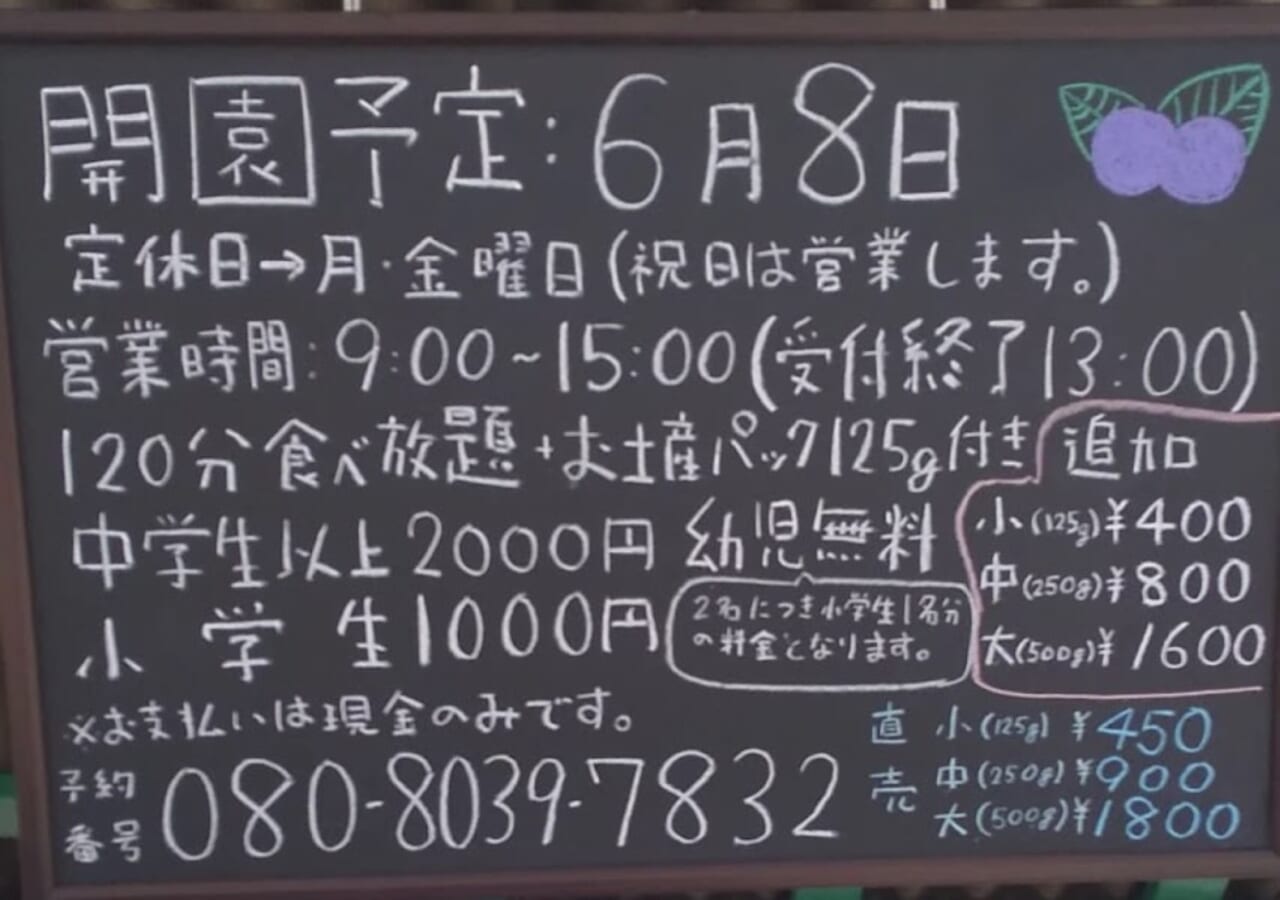 開園予定:6月8日
定休日→月・金曜日(祝日は営業します。)
営業時間:9:00~15:00(受付終了13:00)
120分食べ放題+お土産パック125g付き
中学生以上2000円 幼児無料
小学生1000円
2名につき小学生1名分
の料金となります。
追加
小(125g)¥400
中(250g)¥800
大(500g)¥1600
※お支払いは現金のみです。
予約
番号 080-8039-7832
直売
小(125g)¥450
中(250g)¥900
大(500g)¥1800